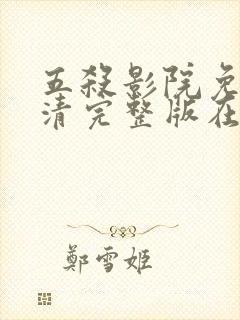 五殺影院免
清完整版在
鄭雪姬